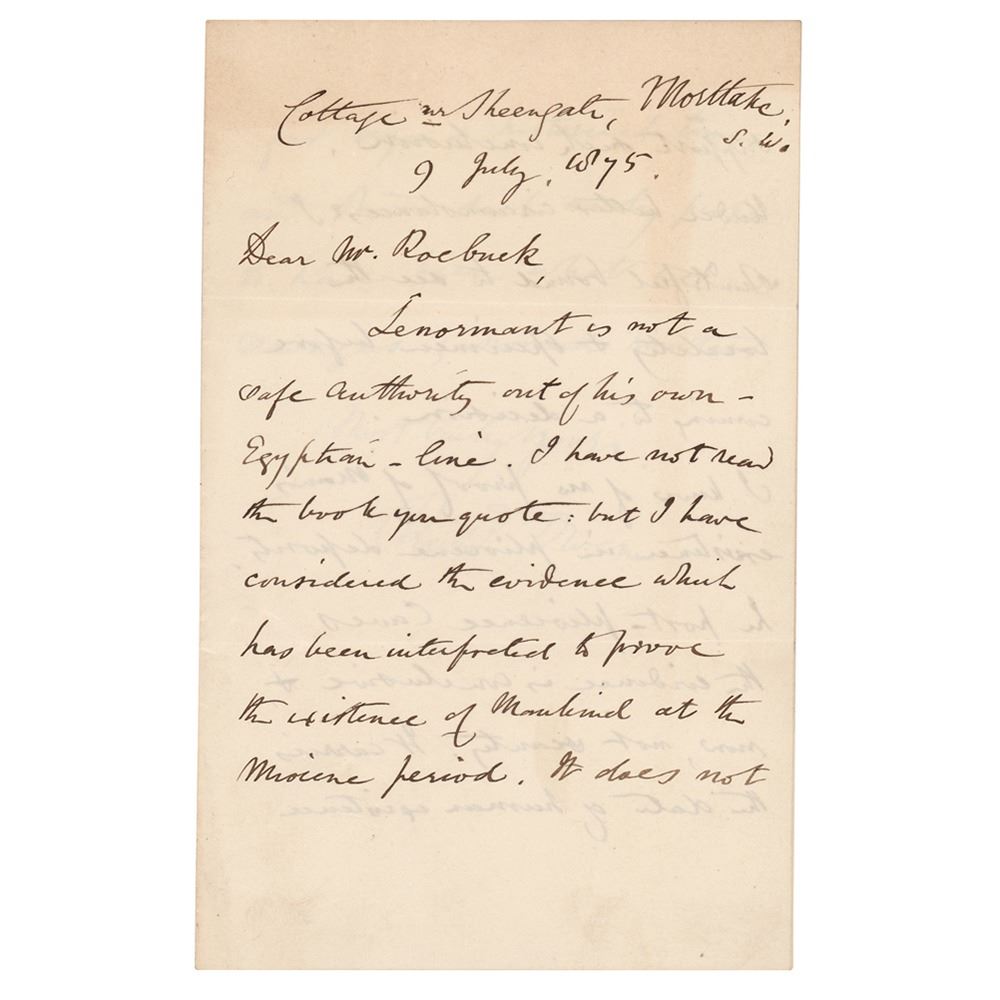 Cottage nr Sheengate, Mortlake,
S. W.
9 July, 1875.
Dear Mr. Roebuck,
Lenormant is not a
safe authority out of his own –
Egyptian – line. I have not read
the book you quote: but I have
considered the evidence which
has been interpreted to prove
the existence of Mankind at the
Miocene period. It does not